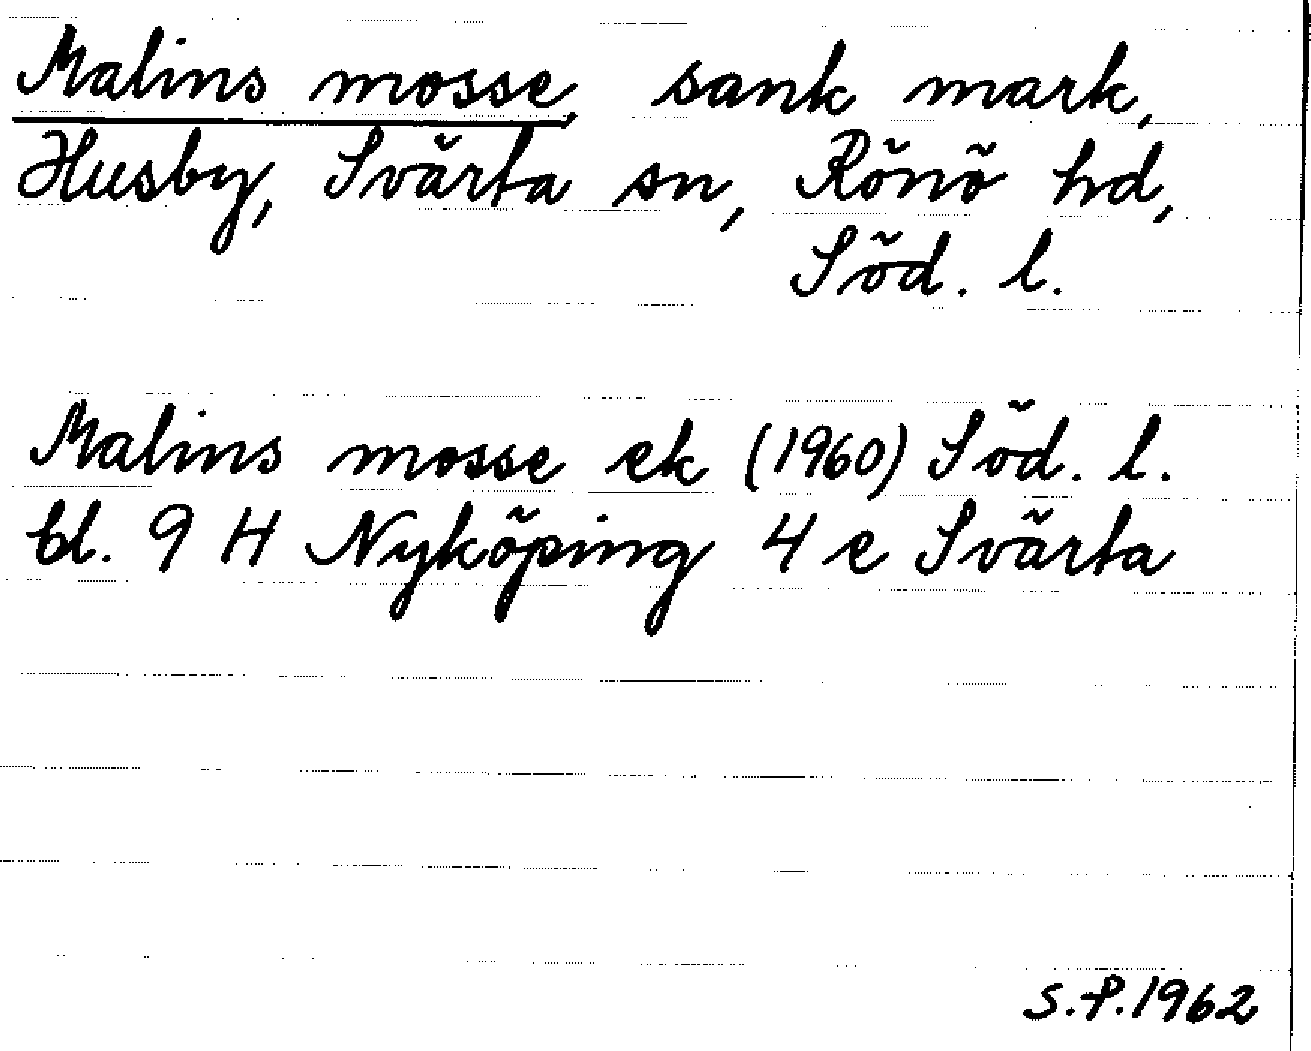 Malins mosse, sank mark,
Husby, Svärta sn, Rönö hd,
Söd. l.
Malins mosse ek (1960) Söd. l.
bl. 9 H Nyköping 4 e Svärta
S.P. 1962